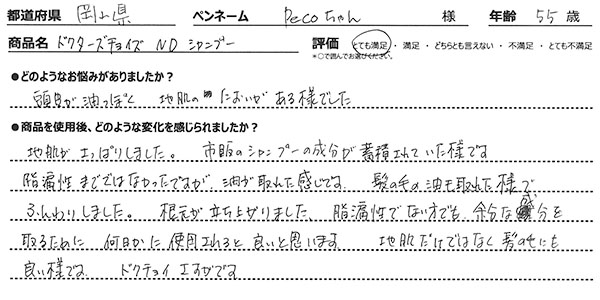 都道府県 岡山県 ペンネーム Pecoちゃん 様 年齢 55 歳
商品名 ドクターズチョイス ND シャンプー 評価 とても満足 ・ 満足 ・ どちらとも言えない ・ 不満足 ・ とても不満足
※○で囲んでお選びください。
●どのようなお悩みがありましたか？
頭皮が油っぽく 地肌の においが ある様でした
●商品を使用後、どのような変化を感じられましたか？
地肌が さっぱりしました。 市販のシャンプーの成分が蓄積されていた様です
脂漏性までではなかったですが、油が取れた感じです。 髪の毛の油も取れた様で
ふんわりしました。 根元が立ち上がりました、脂漏性でない方でも、余分な成分を
取るために 何日かに使用されると良いと思います 地肌だけではなく髪の毛にも
良い様です。 ドクチョイさすがです